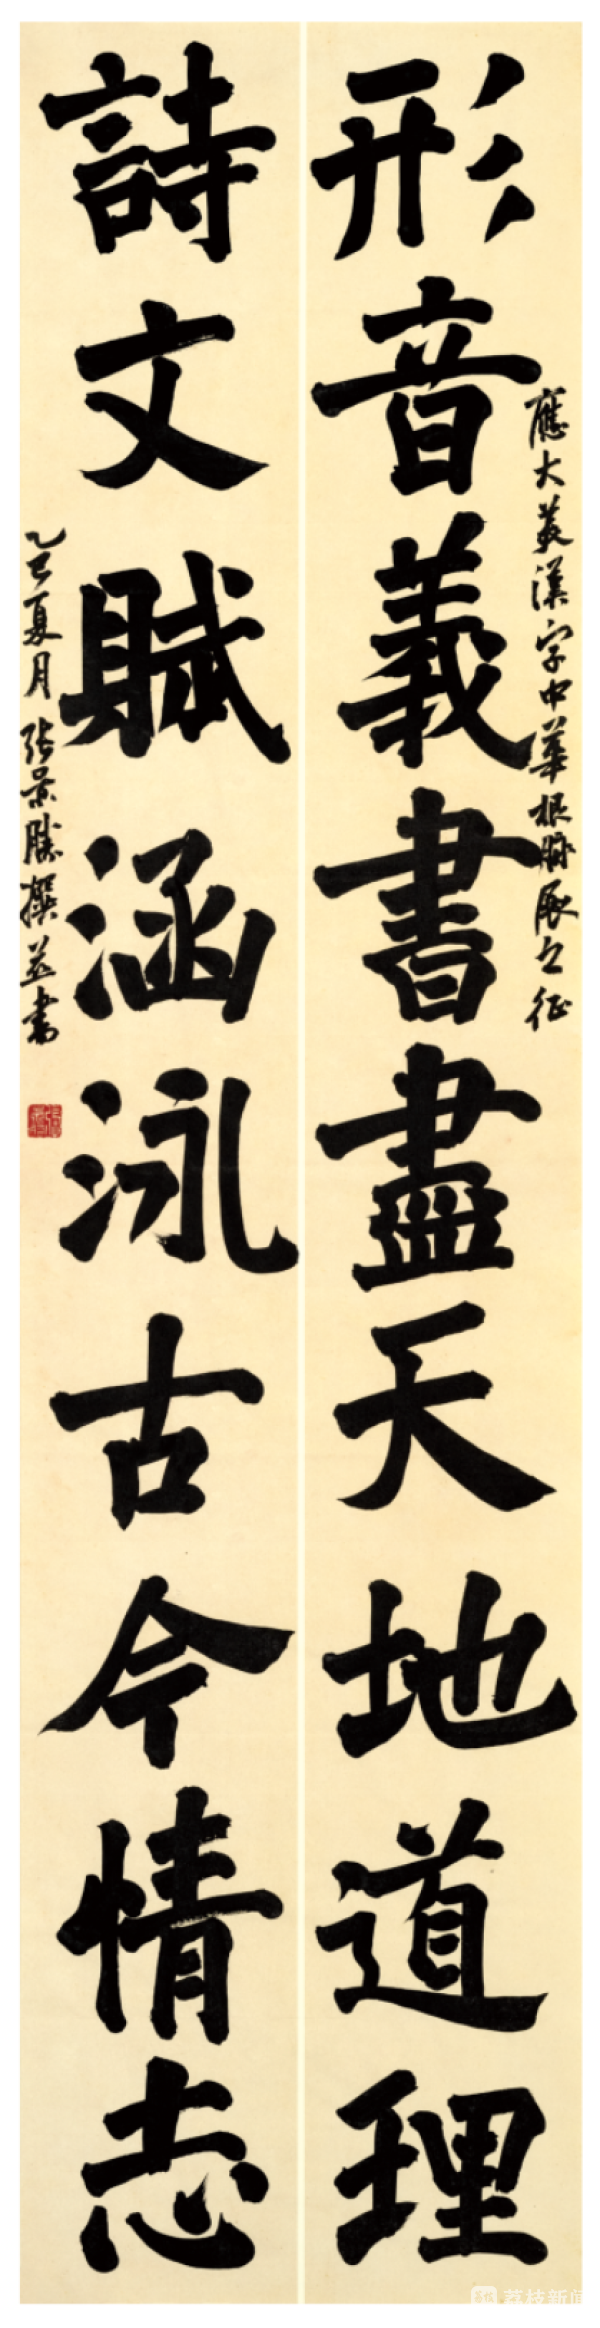 應大美漢字中華根脉展之征
形音義書盡天地道理
詩文賦涵泳古今情志
乙巳夏月張景勝撰並書
荔枝新闻